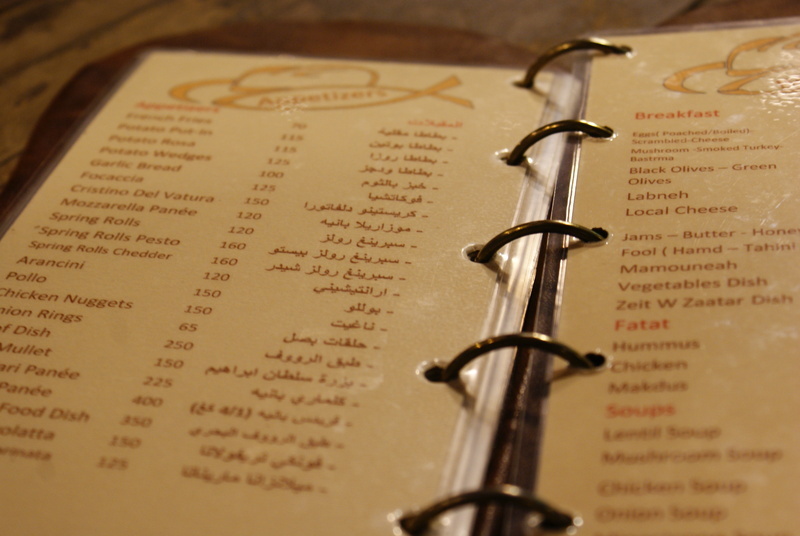 Appetizers
Appetizers المقبلات
French Fries 70 - بطاطا مقلية
Potato Pot-in 115 - بطاطا بوتين
Potato Rosa 115 - بطاطا روزا
Potato Wedges 125 - بطاطا ودجز
Garlic Bread 100 - خبز بالثوم
Focaccia 125 - فوكاتشيا
Cristino Del Vatura 150 - كريستينو دلفاتورا
Mozzarella Panée 120 - موزاريلا بانيه
Spring Rolls 120 - سبرينغ رولز
"Spring Rolls Pesto 160 - سبرينغ رولز بيستو
Spring Rolls Chedder 160 - سبرينغ رولز شيدر
Arancini 120 - ارانتيشيني
Pollo 150 - بوللو
Chicken Nuggets 150 - ناغيت
nion Rings 65 - حلقات بصل
of Dish 250 - طبق الرووف
Mullet 150 - بزرة سلطان ابراهيم
ari Panée 225 - كلماري بانيه
Panée 400 - فريدس بانيه (1/4 كغ)
Food Dish 350 - طبق الرووف البحري
olatta 150
arinata 125 - ميلانزانا مارينانا
Breakfast
Eggs( Poached/Boiled)-
Scrambled-Cheese
Mushroom -Smoked Turkey-
Bastrma
Black Olives – Green
Olives
Labneh
Local Cheese
Jams – Butter - Hones
Fool ( Hamd – Tahini
Mamouneah
Vegetables Dish
Zeit W Zaatar Dish
Fatat
Hummus
Chicken
Makdus
Soups
Lentil Soup
Mushroom Soup
Chicken Soup
Onion Soup